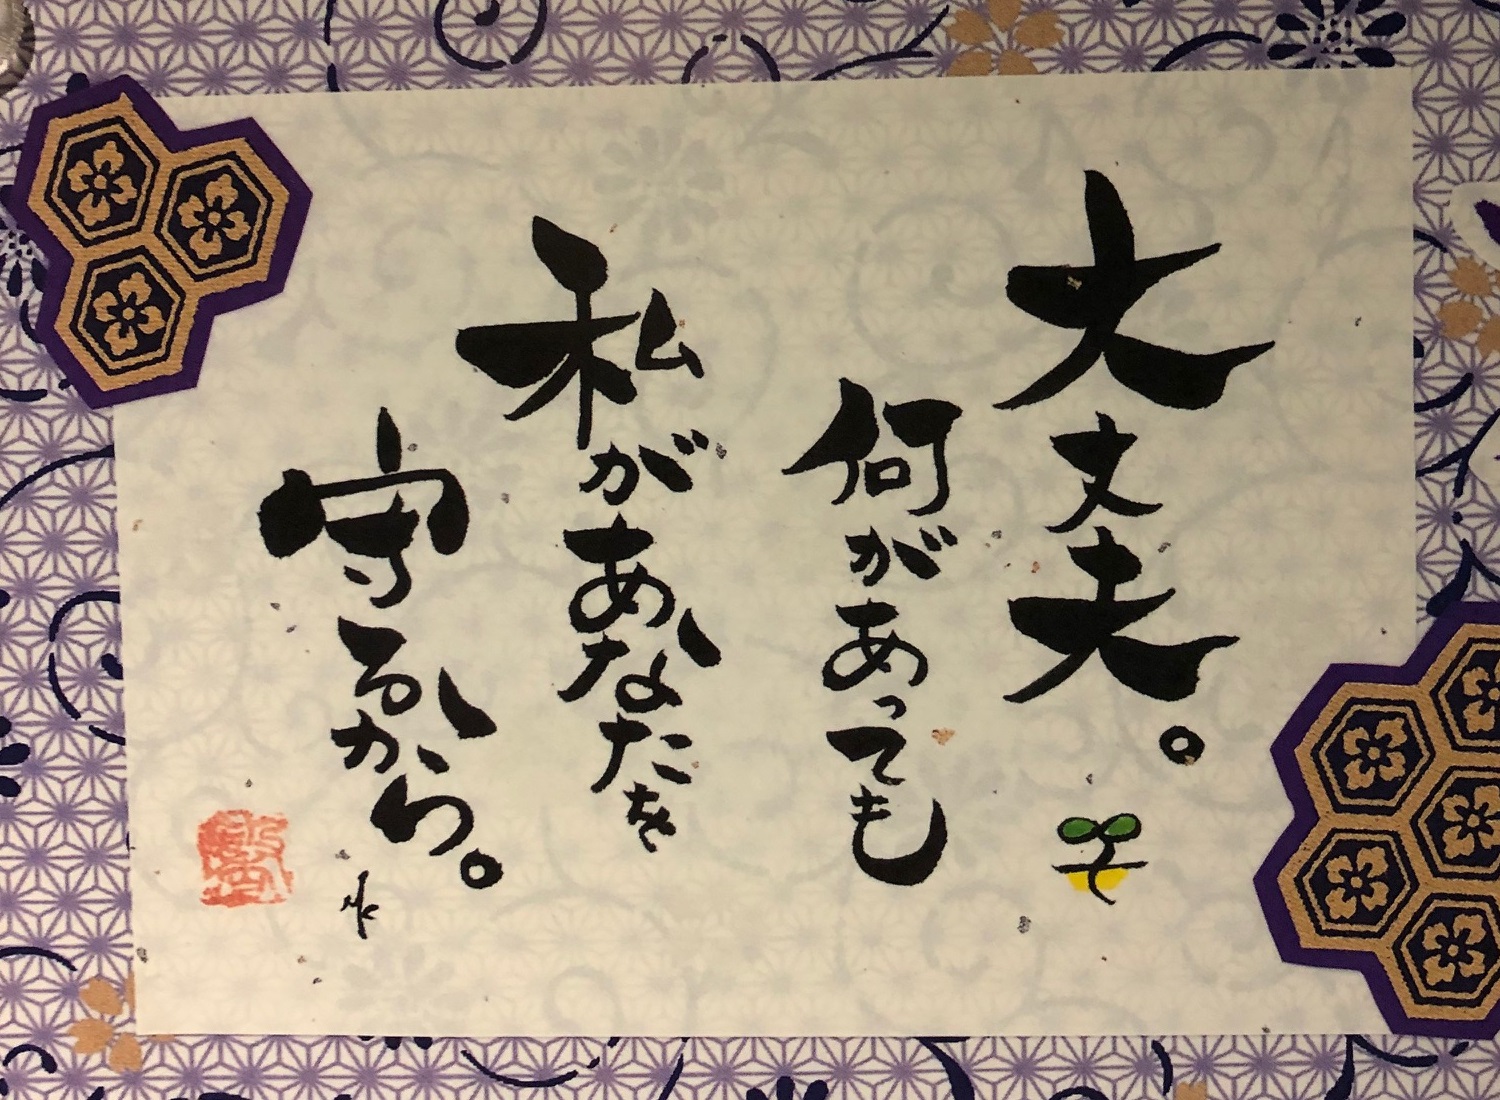 大丈夫。
何があっても
私があなたを
守るから。